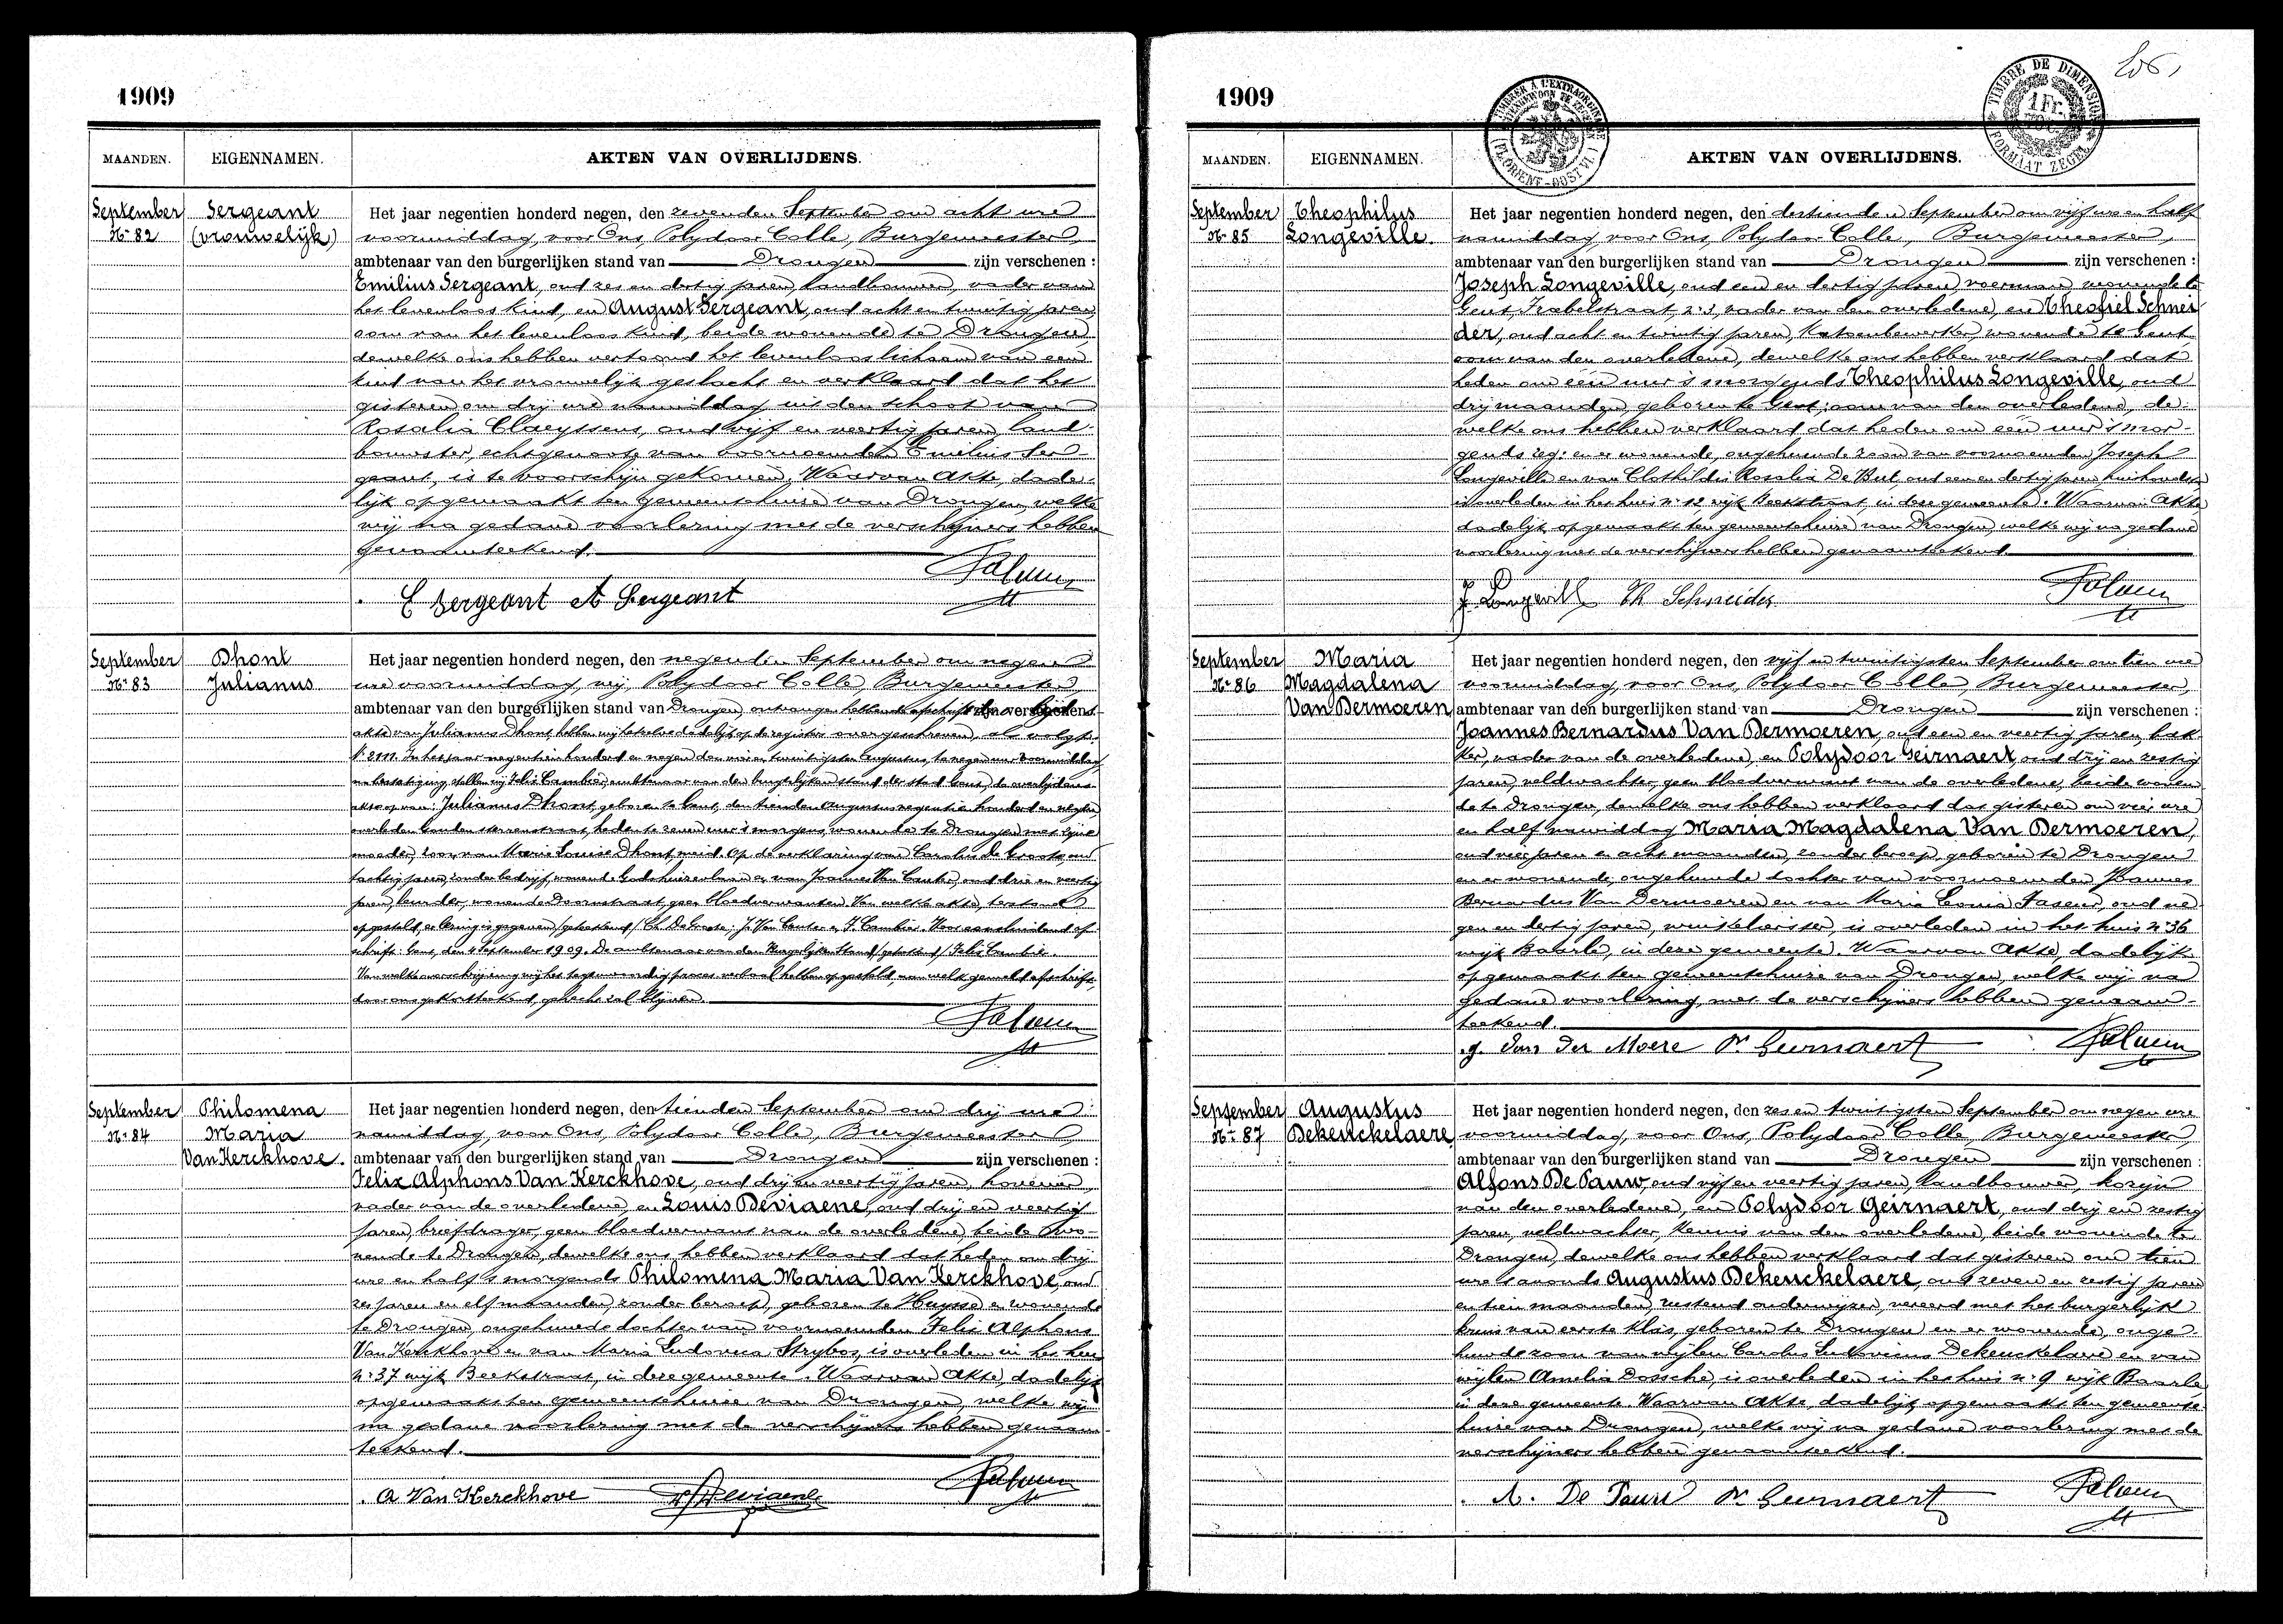 1909
MAANDEN. EIGENNAMEN. AKTEN VAN OVERLIJDENS.
September Nr 82
Sergeant (vrouwelijk)
Het jaar negentien honderd negen, den zevenden September om acht ure
voormiddag, voor Ons, Polydoor Colle, Burgemeester,
ambtenaar van den burgerlijken stand van Drongen zijn verschenen :
Emilius Sergeant, oud zes en dertig jaren, landbouwer, vader van
het levenloos kind, en August Sergeant, oud acht en twintig jaren,
oom van het levenloos kind, beide wonende te Drongen,
dewelke ons hebben vertoond het levenloos lichaam van een
kind van het vrouwelijk geslacht en verklaard dat het
gisteren om drij ure namiddag uit den schoot van
Rosalia Claeyssens, oud vijf en veertig jaren, land-
bouwster, echtgenoote van voornoemden Emilius Ser-
geant, is te voorschijn gekomen. Waarvan Akte, dade-
lijk opgemaakt ten gemeentehuize van Drongen, welke
wij na gedane voorlezing met de verschijners hebben
genaamteekend.
E Sergeant A Sergeant
September Nr 83
Dhont Julianus
Het jaar negentien honderd negen, den negenden September om negen
ure voormiddag, wij, Polydoor Colle, Burgemeester,
ambtenaar van den burgerlijken stand van Drongen, ontvangen hebbende afschrift der overlijdens
akte van Julianus Dhont hebben wij dezelve dadelijk op de registers overgeschreven, als volgt:
In het jaar negentien honderd en negen den vier en twintigsten Augustus, te negen uur voormiddag,
na bestatiging, stellen wij Felix Cambier, ambtenaar van den burgerlijken stand der stad Gent, de overlijdens
akte op van: Julianus Dhont, geboren te Gent, den tienden Augustus negentien honderd en negen,
overleden heden te zeven uur 's morgens, wonende te Drongen met zijne
moeder, zoon van Marie Louise Dhont, meid. Op de verklaring van Carolus De Groote, oud
tachtig jaren, zonder bedrijf, wonende Godshuizenlaan en van Joannes Van Canter, oud drie en veertig
jaren, wonende Doornstraat, geen bloedverwanten. Van welke akte, terstond
opgesteld, er lezing is gegeven (geteekend) Ch. De Groote; J. Van Canter en F. Cambier. Voor eensluidend af-
schrift: Gent, den 4 September 1909. De ambtenaar van den Burgerlijken Stand, (geteekend) Felix Cambier.
Van welke overschrijving wij het tegenwoordig proces verbaal hebben opgesteld, aan welk gemeld afschrift,
door ons gekortteekend, gehecht zal blijven.
September Nr 84
Philomena Maria Van Kerckhove.
Het jaar negentien honderd negen, den tienden September om drij ure
namiddag, voor Ons, Polydoor Colle, Burgemeester,
ambtenaar van den burgerlijken stand van Drongen zijn verschenen :
Felix Alphons Van Kerckhove, oud drij en veertig jaren, hovenier,
vader van de overledene, en Louis Deviaene, oud drij en veertig
jaren, briefdrager, geen bloedverwant van de overledene, beide wo-
nende te Drongen, dewelke ons hebben verklaard dat heden om drij
ure en half 's morgends Philomena Maria Van Kerckhove, oud
zes jaren en elf maanden, zonder beroep, geboren te Huysse en wonende
te Drongen, ongehuwde dochter van voornoemden Felix Alphons
Van Kerckhove en van Maria Ludovica Strybos, is overleden in het huis
nr 37 wijk Beekstraat, in deze gemeente. Waarvan Akte, dadelijk
opgemaakt ten gemeentehuize van Drongen, welke wij
na gedane voorlezing met de verschijners hebben genaam-
teekend.
A Van Kerckhove Deviaene
1909
TIMBRER A L'EXTRAORDINAIRE
(FL. ORIENT - OOST VL.)
TIMBRE DE DIMENSION
1 Fr.
FORMAAT ZEGEL
MAANDEN. EIGENNAMEN. AKTEN VAN OVERLIJDENS.
September Nr 85
Theophilus Longeville.
Het jaar negentien honderd negen, den dertienden September om vijf ure en half
namiddag, voor Ons, Polydoor Colle, Burgemeester,
ambtenaar van den burgerlijken stand van Drongen zijn verschenen :
Joseph Longeville, oud een en dertig jaren, voerman, wonende te
Gent, Isabelstraat, vader van den overledene, en Theofiel Schnei
der, oud acht en twintig jaren, katoenbewerker, wonende te Gent
oom van den overledene, dewelke ons hebben verklaard dat
heden om één uur 's morgends Theophilus Longeville, oud
drij maanden, geboren te Gent; oom van den overledene, de
welke ons hebben verklaard dat heden om één uur 's mor-
gends en er wonende, ongehuwde zoon van voornoemden Joseph
Longeville en van Clothildis Rosalia De Put, oud een en dertig jaren, huishoudster
is overleden in het huis nr 12 wijk Beekstraat, in deze gemeente. Waarvan Akte
dadelijk opgemaakt ten gemeentehuize van Drongen, welke wij na gedane
voorlezing met de verschijners hebben genaamteekend.
J. Longeville Th Schneider
September Nr 86
Maria Magdalena Van Dermoeren
Het jaar negentien honderd negen, den vijf en twintigsten September om tien ure
voormiddag, voor Ons, Polydoor Colle, Burgemeester,
ambtenaar van den burgerlijken stand van Drongen zijn verschenen :
Joannes Bernardus Van Dermoeren, oud een en veertig jaren, bak-
ker, vader van de overledene, en Polydoor Geirnaert, oud drij en zestig
jaren, veldwachter, geen bloedverwant van de overledene, beide wonen-
de te Drongen, dewelke ons hebben verklaard dat gisteren om vier ure
en half namiddag Maria Magdalena Van Dermoeren,
oud vier jaren en acht maanden, zonder beroep, geboren te Drongen
en er wonende, ongehuwde dochter van voornoemden Joannes
Bernardus Van Dermoeren en van Maria Leonia Fasens, oud ne-
gen en dertig jaren, winkelierster, is overleden in het huis nr 36
wijk Baarle, in deze gemeente. Waarvan Akte, dadelijk
opgemaakt ten gemeentehuize van Drongen, welke wij na
gedane voorlezing met de verschijners hebben genaam-
teekend.
J. Van Der Moere Pr Geirnaert
September Nr 87
Augustus Dekenckelaere
Het jaar negentien honderd negen, den zes en twintigsten September om negen ure
voormiddag, voor Ons, Polydoor Colle, Burgemeester,
ambtenaar van den burgerlijken stand van Drongen zijn verschenen :
Alfons De Pauw, oud vijf en veertig jaren, landbouwer, kozijn
van den overledene, en Polydoor Geirnaert, oud drij en zestig
jaren, veldwachter, kennis van den overledene, beide wonende te
Drongen, dewelke ons hebben verklaard dat gisteren om tien
ure 's avonds Augustus Dekenckelaere, oud zeven en zestig jaren
en tien maanden, rustend onderwijzer, vereerd met het burgerlijk
kruis van eerste klas, geboren te Drongen en er wonende, onge-
huwde zoon van wijlen Carolus Ludovicus Dekenckelaere en van
wijlen Amelia Dossche, is overleden in het huis nr 9 wijk Baarle
in deze gemeente. Waarvan Akte, dadelijk opgemaakt ten gemeente-
huize van Drongen, welke wij na gedane voorlezing met de
verschijners hebben genaamteekend.
A. De Pauw Pr Geirnaert